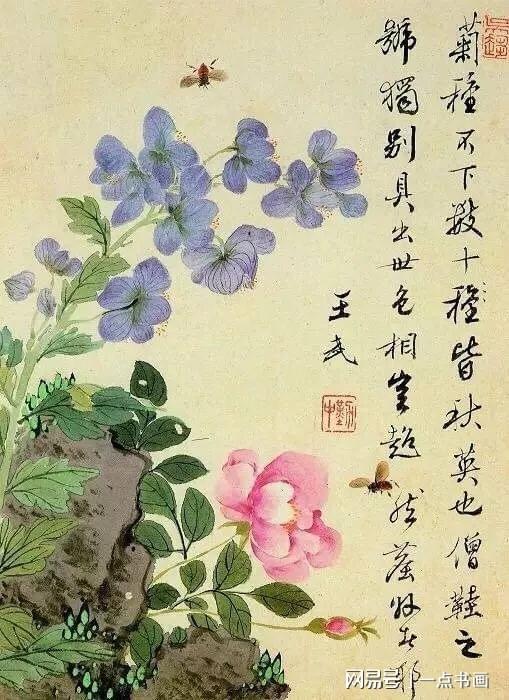 菊種不下數十種皆秋英也僧鞋之
號獨別具出世色相豈超然塵外者耶
王武
网易号 | 一点书画